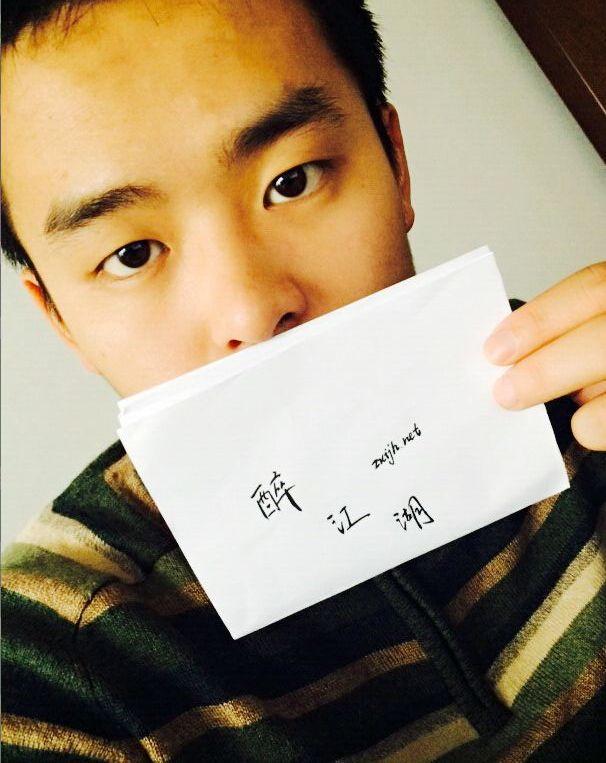 zxijh.net
醉江湖